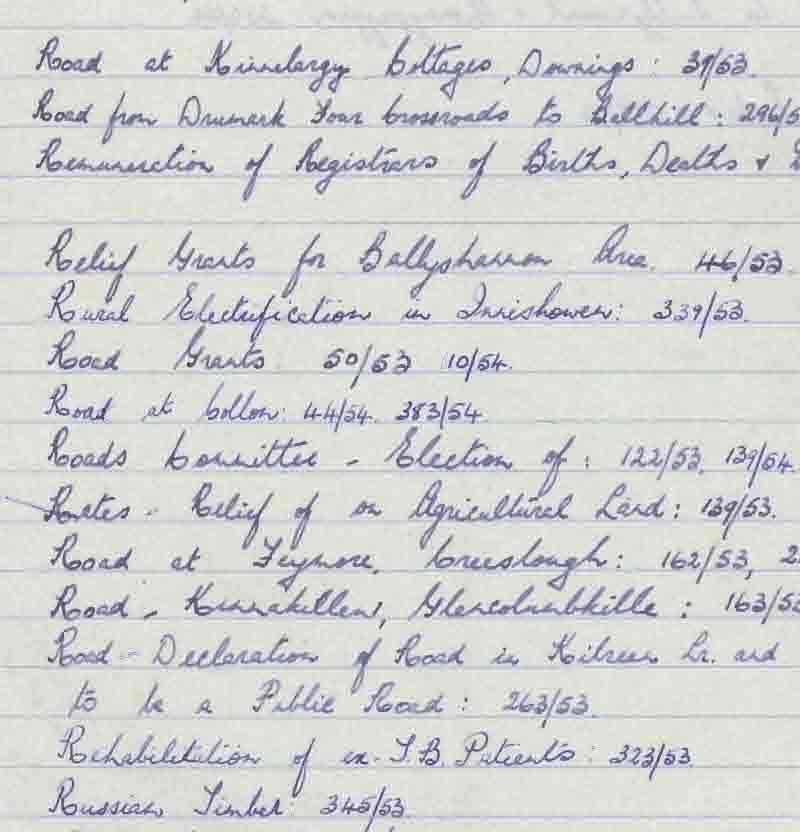 Road at Kinnalargy Cottages, Downings: 37/53.
Road from Drumark Four Crossroads to Bellhill: 296/5
Remuneration of Registrars of Births, Deaths &
Relief Grants for Ballyshannon Area. 46/53.
Rural Electrification in Innishowen: 339/53.
Road Grants 50/53 10/54.
Road at Collon: 44/54. 383/54
Roads Committee - Election of: 122/53, 139/54.
Rates - Relief of on Agricultural Land: 139/53.
Road at Feymore, Creeslough: 162/53, 2
Road - Kinnakillew, Glencolumbkille: 163/53
Road - Declaration of Road in Kilrean Lr. and
to be a Public Road: 263/53.
Rehabilitation of ex-T.B. Patients: 323/53.
Russian Timber: 345/53.